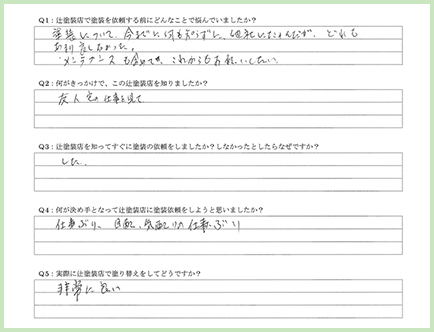 Q1：辻塗装店で塗装を依頼する前にどんなことで悩んでいましたか？
塗装について、今までに何も知らずに、他社いたのんだが、どれも
あまり良くなかった。
・メンテナンスも含めて、これからもお願いしたい。
Q2：何がきっかけで、この辻塗装店を知りましたか？
友人宅の仕事を見て
Q3：辻塗装店を知ってすぐに塗装の依頼をしましたか？しなかったとしたらなぜですか？
した。
Q4：何が決め手となって辻塗装店に塗装依頼をしようと思いましたか？
仕事ぶり、目配、気配りの仕事ぶり
Q5：実際に辻塗装店で塗り替えをしてどうですか？
非常に良い